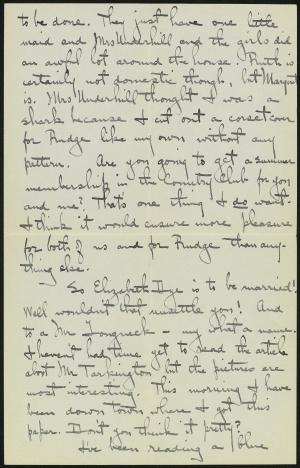 to be done. They just have one little
maid and Mrs Underhill and the girls did
an awful lot around the house. Ruth is
certainly not domestic though, but Margaret
is. Mrs Underhill thought I was a
shark because I cut out a corset cover
for Pudge like my own without any
pattern. Are you going to get a summer
membership in the Country Club for you
and me? That's one thing I do want.
I think it would ensure more pleasure
for both of us and for Pudge than any-
thing else.
So Elizabeth is to be married!
Well wouldn't that unsettle you! And
to a Mr - my what a name.
I haven't had time yet to read the article
about Mr Tarkington but the pictures are
most interesting. This morning I have
been down town where I got this
paper. Don't you think it pretty?
I've been reading a blue